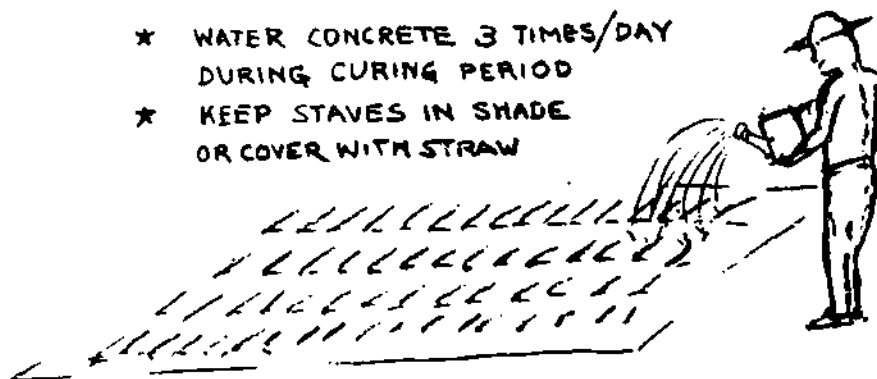 * WATER CONCRETE 3 TIMES/DAY
DURING CURING PERIOD
* KEEP STAVES IN SHADE
OR COVER WITH STRAW